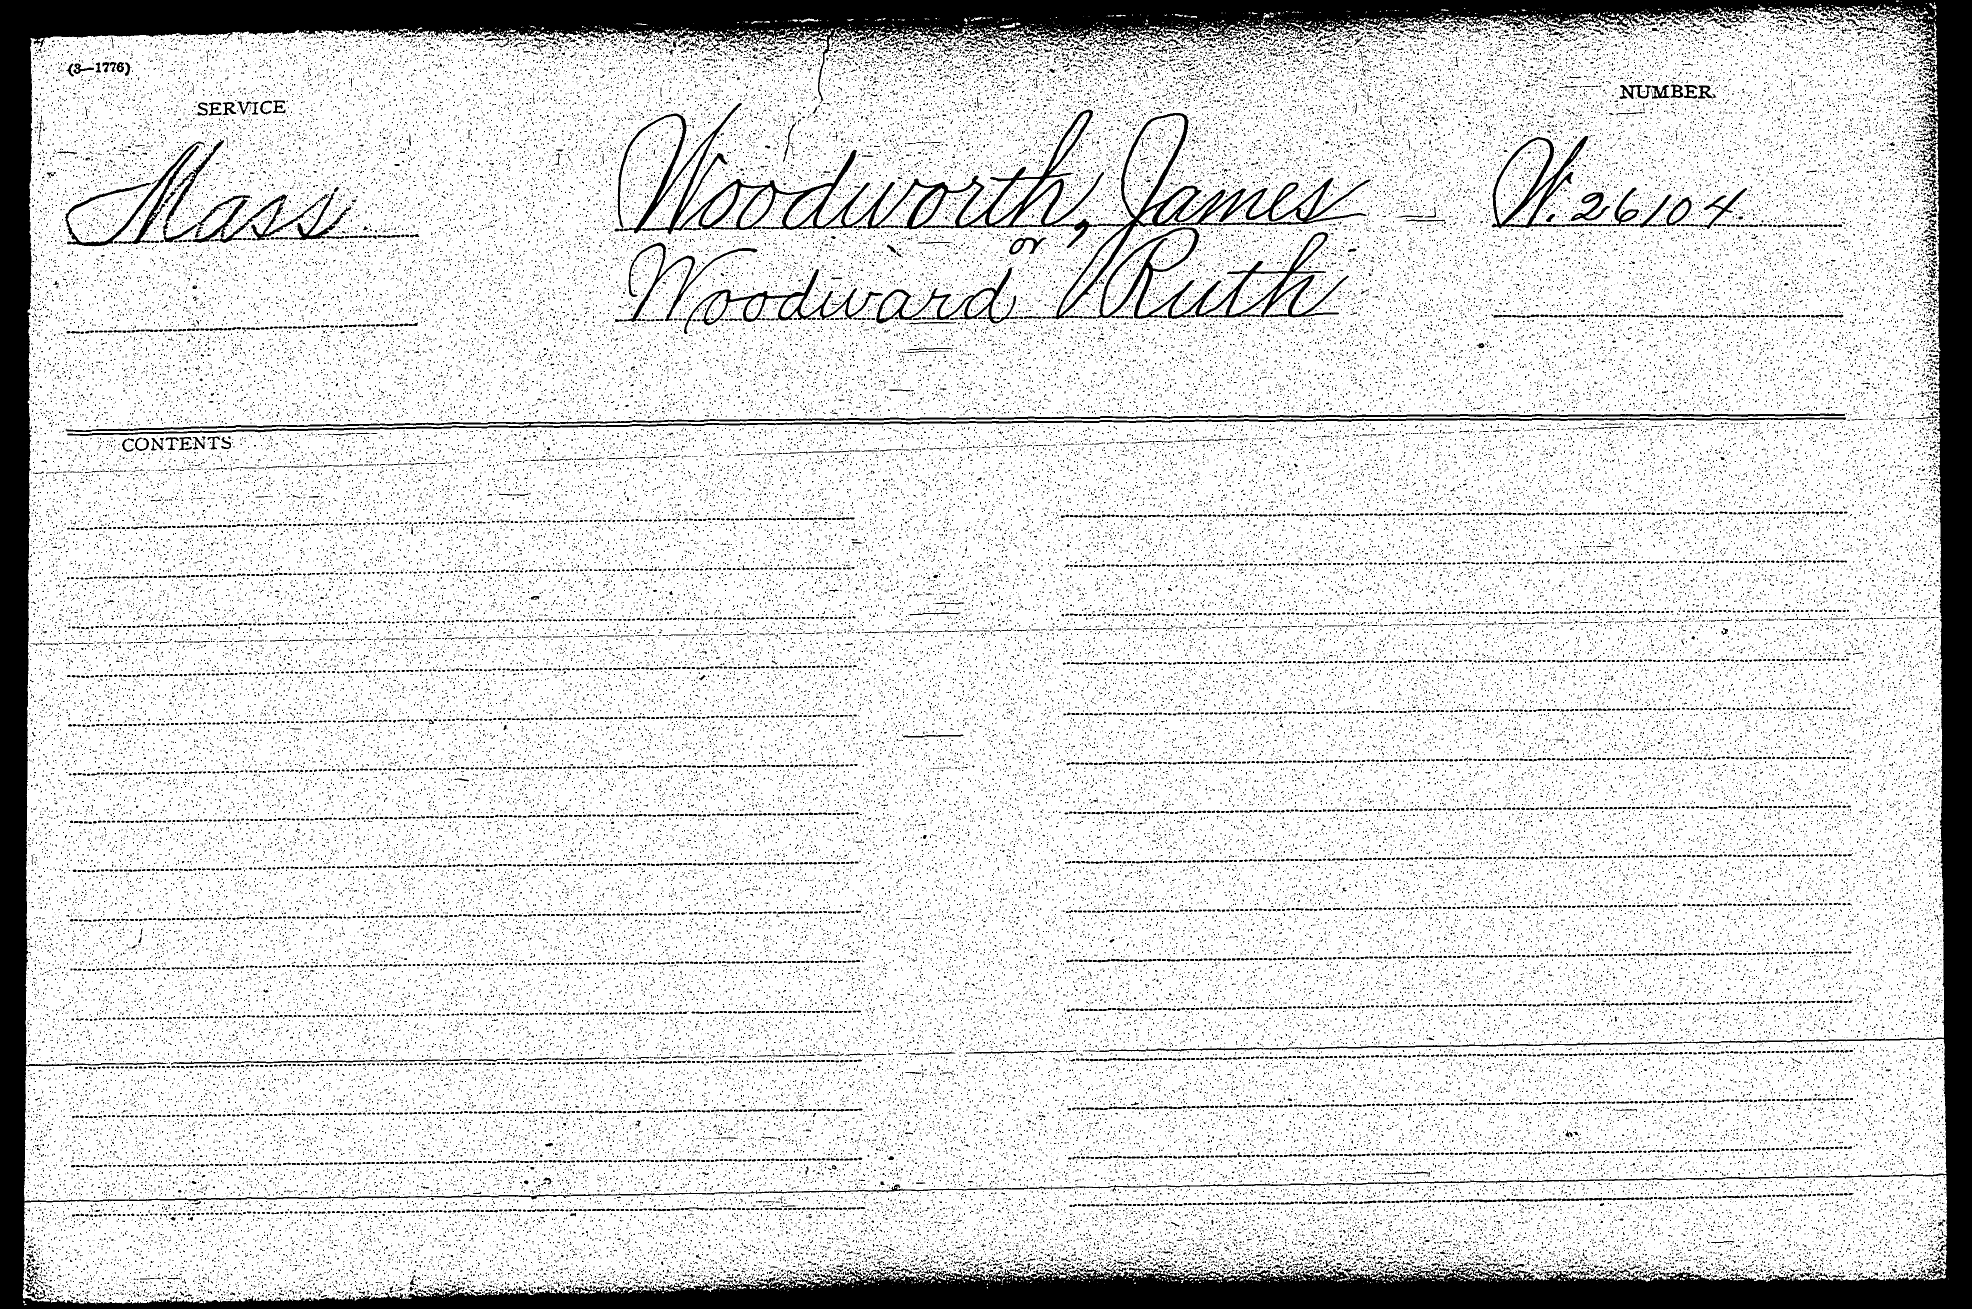 (3—1776)
SERVICE
NUMBER
Mass.
Woodworth, James
W. 26104.
or
Woodward Ruth
CONTENTS